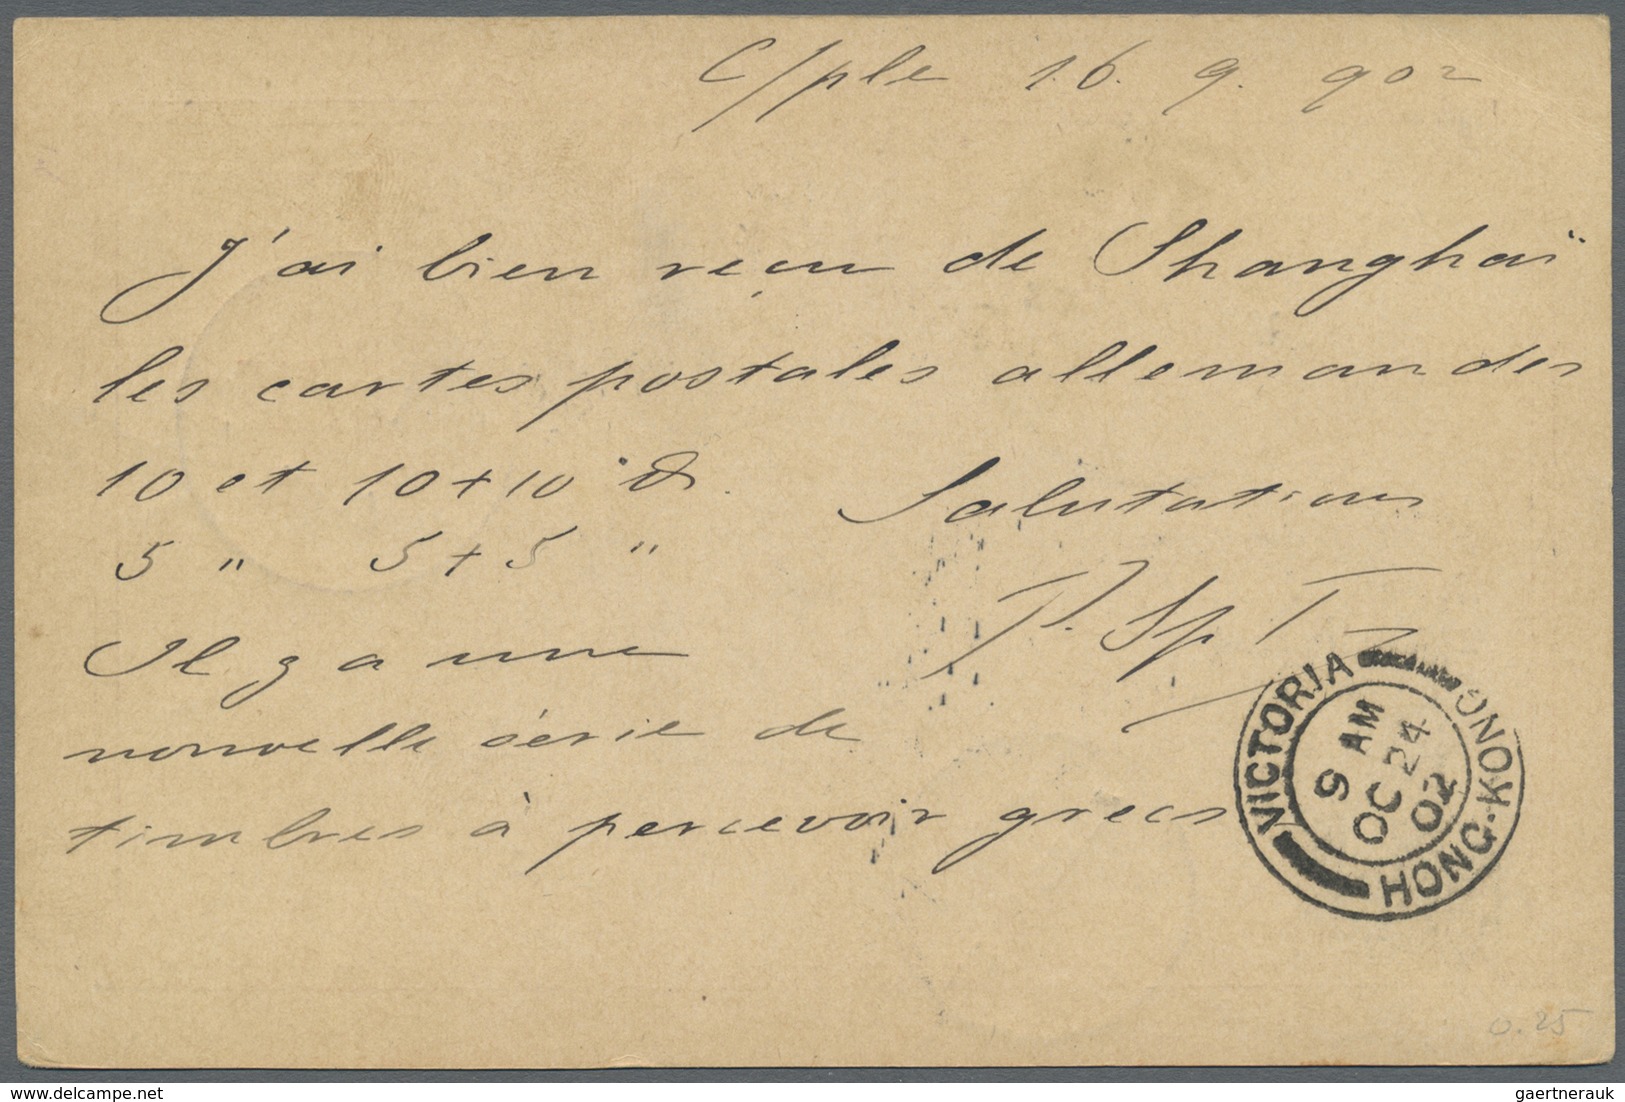 C/ple 16. 9. 902
J'ai bien reçu de Shanghaï
les cartes postales allemandes
10 et 10+10
5 " 5+5 "
Salutations
Il y a une
nouvelle série de
timbres à percevoir grecs
VICTORIA
HONG-KONG
9 AM
OC 24
02
0.25
delcampe.net
gaertnerauk